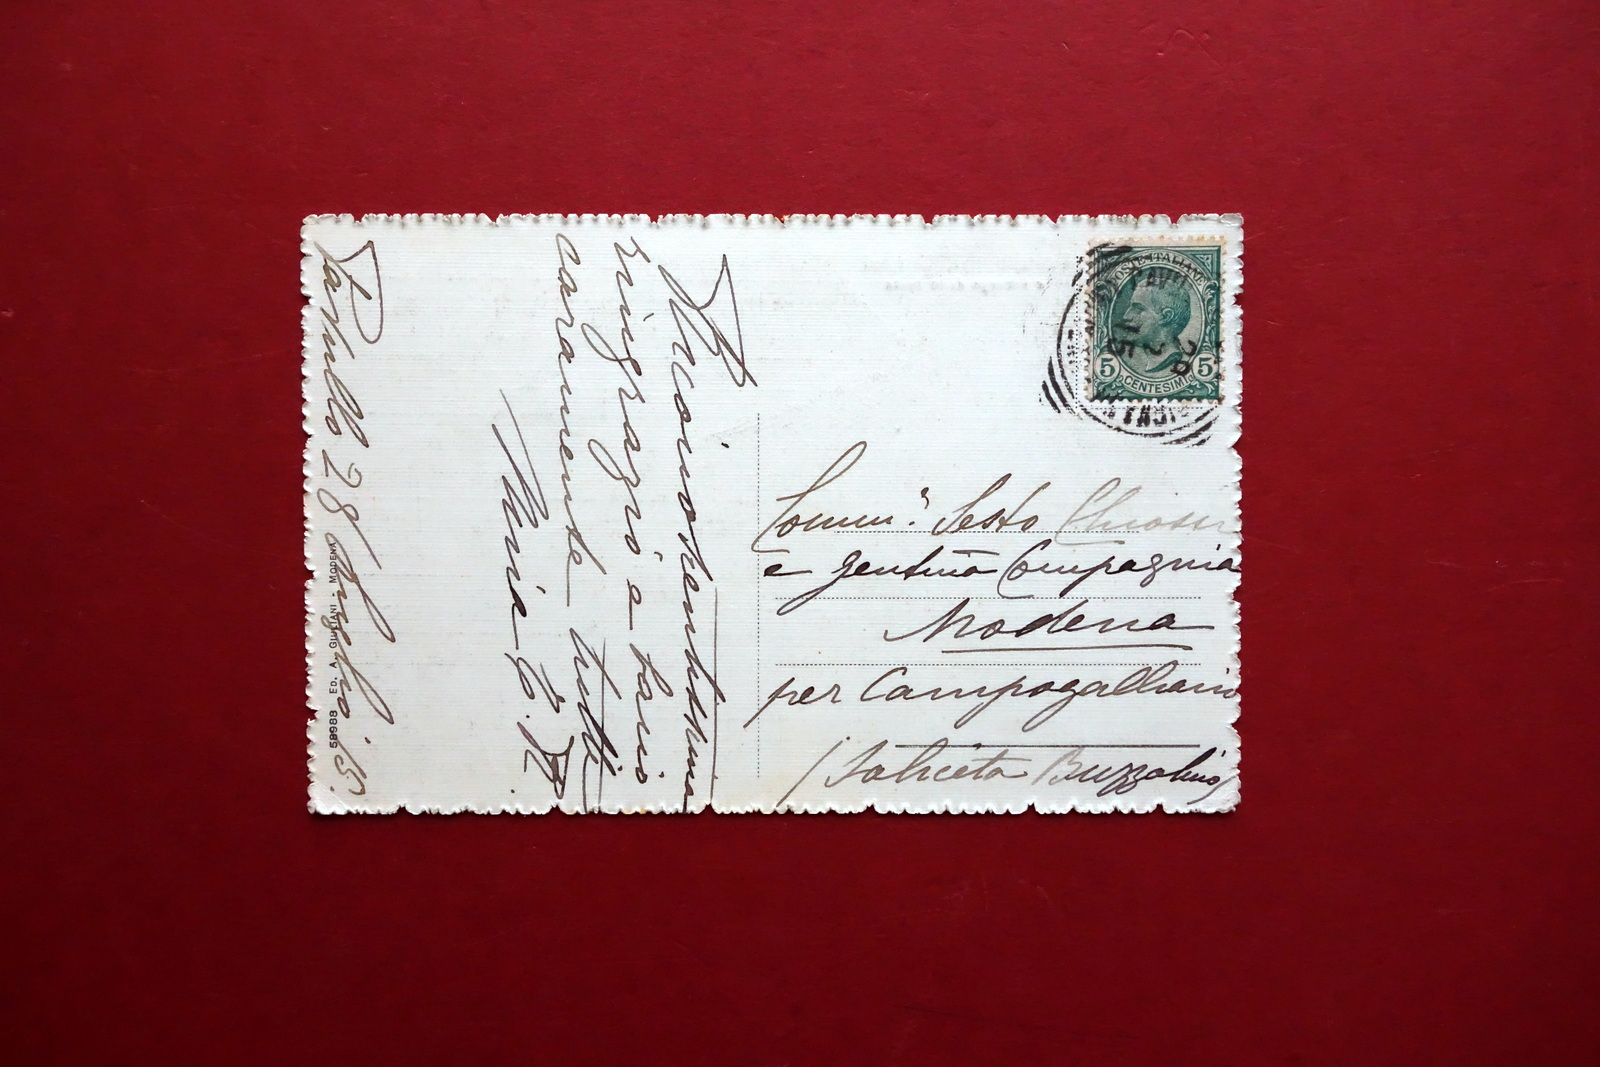 Pavullo 28 Luglio '15.
Riconoscentissima
ringrazio e bacio
caramente tutti
Maria
58988 ED. A. GIULIANI - MODENA
POSTE ITALIANE
5 CENTESIMI 5
PAVU
28
15
Comm. Sesto Chiossi
e gentma Compagnia
Modena
per Campogalliano
(Saliceta Buzzalino)